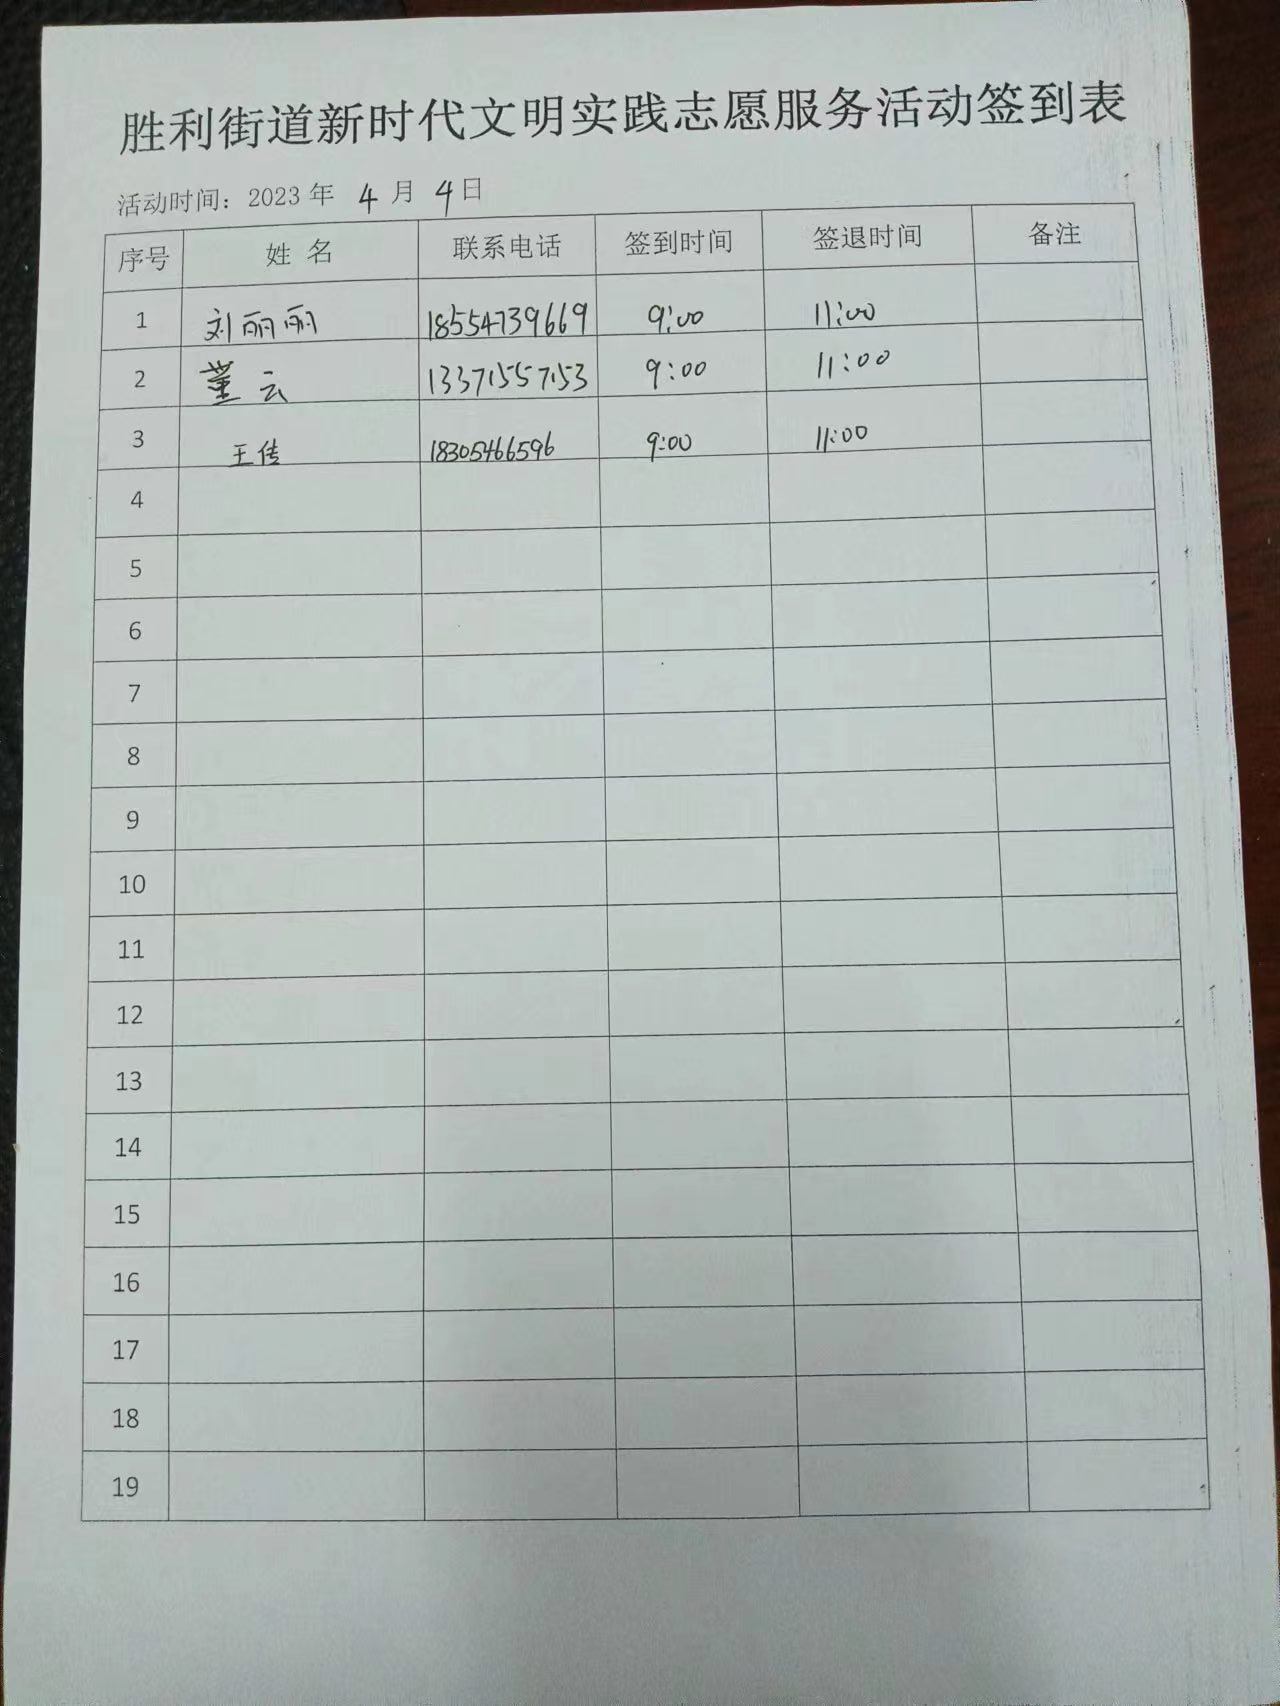 胜利街道新时代文明实践志愿服务活动签到表
活动时间：2023 年 4 月 4日
序号 姓 名 联系电话 签到时间 签退时间 备注
1 刘丽丽 18554739669 9:00 11:00
2 董云 13371557153 9:00 11:00
3 王传 18305466596 9:00 11:00
4
5
6
7
8
9
10
11
12
13
14
15
16
17
18
19